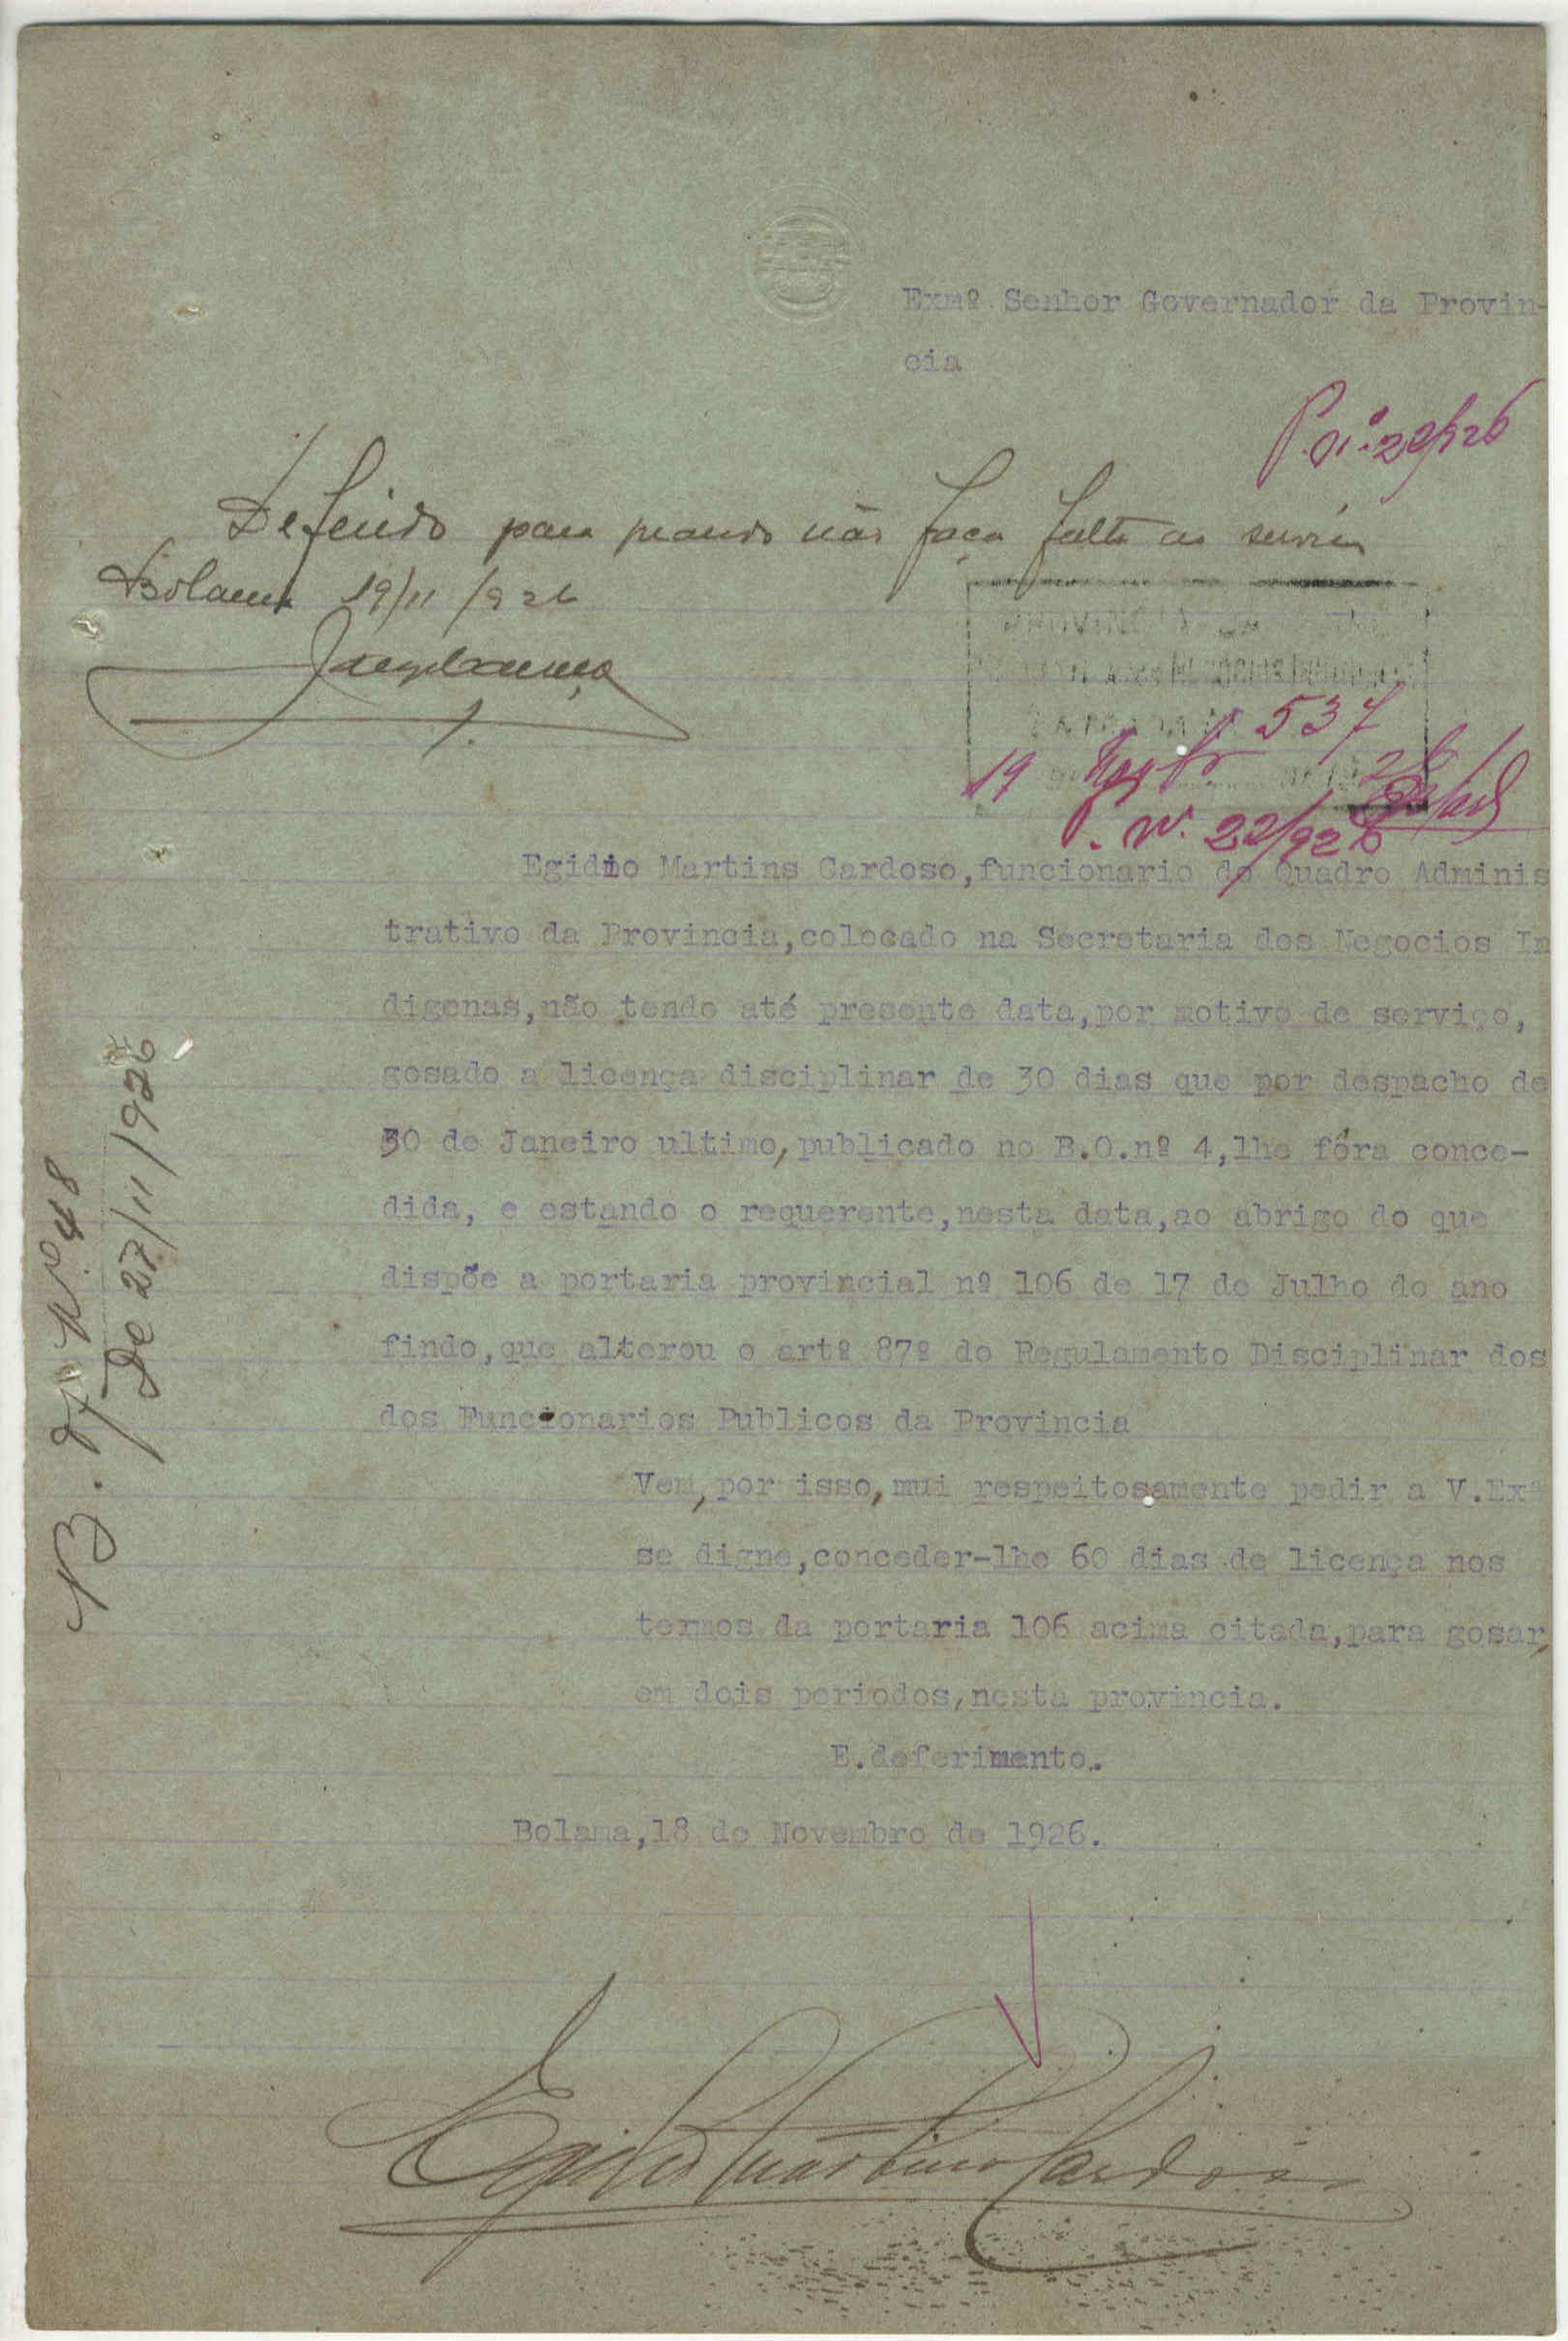 Exmº Senhor Governador da Provin-
cia
P. nº 22/926
Deferido para quando não faça falta ao serviço
Bolama 19/11/926
537
19
26
P. Nº 22/926
Egidio Martins Cardoso,funcionario do Quadro Adminis
trativo da Provincia,colocado na Secretaria dos Negocios In
digenas,não tendo até presente data,por motivo de serviço,
gosado a licença disciplinar de 30 dias que por despacho de
30 de Janeiro ultimo,publicado no B.O.nº 4,lhe fôra conce-
dida, e estando o requerente,nesta data,ao abrigo do que
dispõe a portaria provincial nº 106 de 17 de Julho do ano
findo,que alterou o artº 87º do Regulamento Disciplinar dos
dos Funcionarios Publicos da Provincia
Vem,por isso,mui respeitosamente pedir a V.Exª
se digne,conceder-lhe 60 dias de licença nos
termos da portaria 106 acima citada,para gosar,
em dois periodos,nesta provincia.
E.deferimento.
Bolama,18 de Novembro de 1926.
Egidio Martins Cardoso
B. Of Nº 48
De 27/11/926